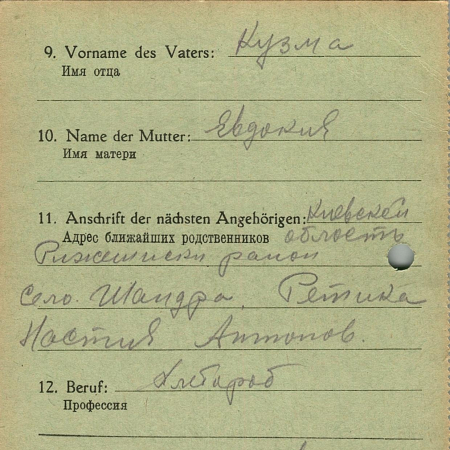 9. Vorname des Vaters: Кузма
Имя отца
10. Name der Mutter: Евдокия
Имя матери
11. Anschrift der nächsten Angehörigen: Киевскей
Адрес ближайших родственников облость
район
село. Шандра, Ретика
Настия Антонов.
12. Beruf: Хлебароб
Профессия